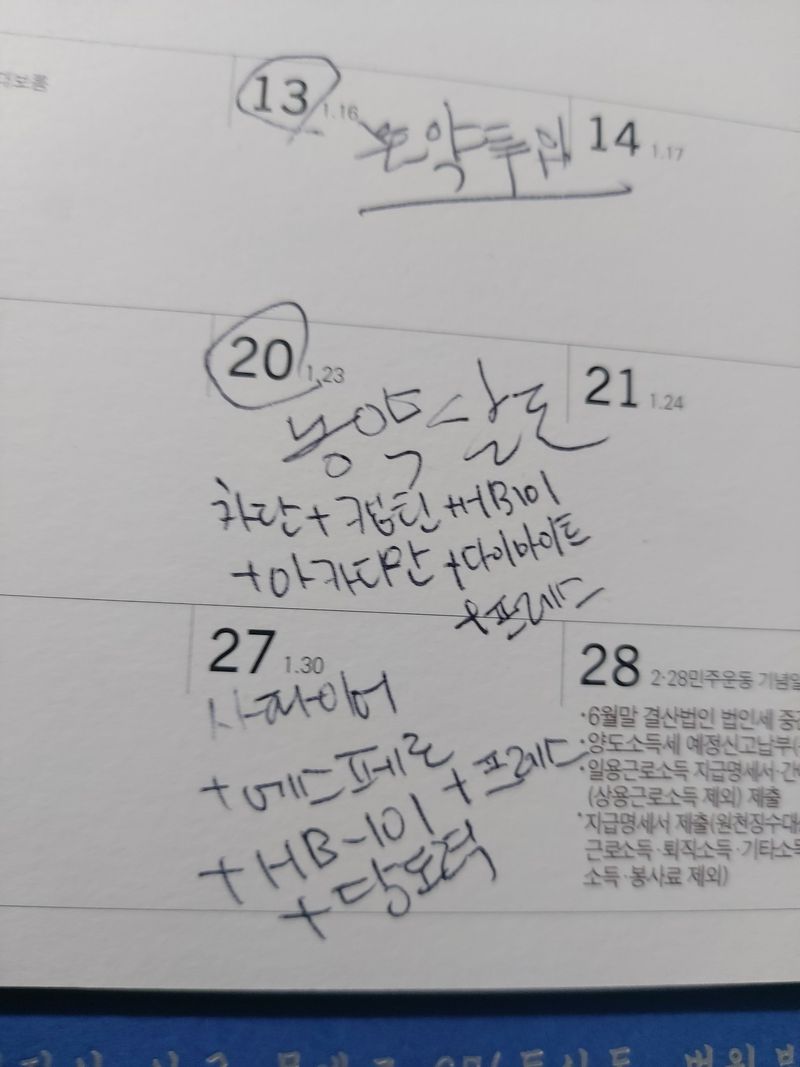 대보름
13 1.16 토약투위 14 1.17
20 1.23 21 1.24
농약살포
차단+캡틴+HB101
+아카다만+다이바이트
+프레스
27 1.30 28 2·28민주운동 기념일
사파이어
+에스페로+프레스
+HB-101
+당도력
·6월말 결산법인 법인세 중간
·양도소득세 예정신고납부(
·일용근로소득 지급명세서·간
(상용근로소득 제외) 제출
·지급명세서 제출(원천징수대상
근로소득·퇴직소득·기타소득
소득·봉사료 제외)